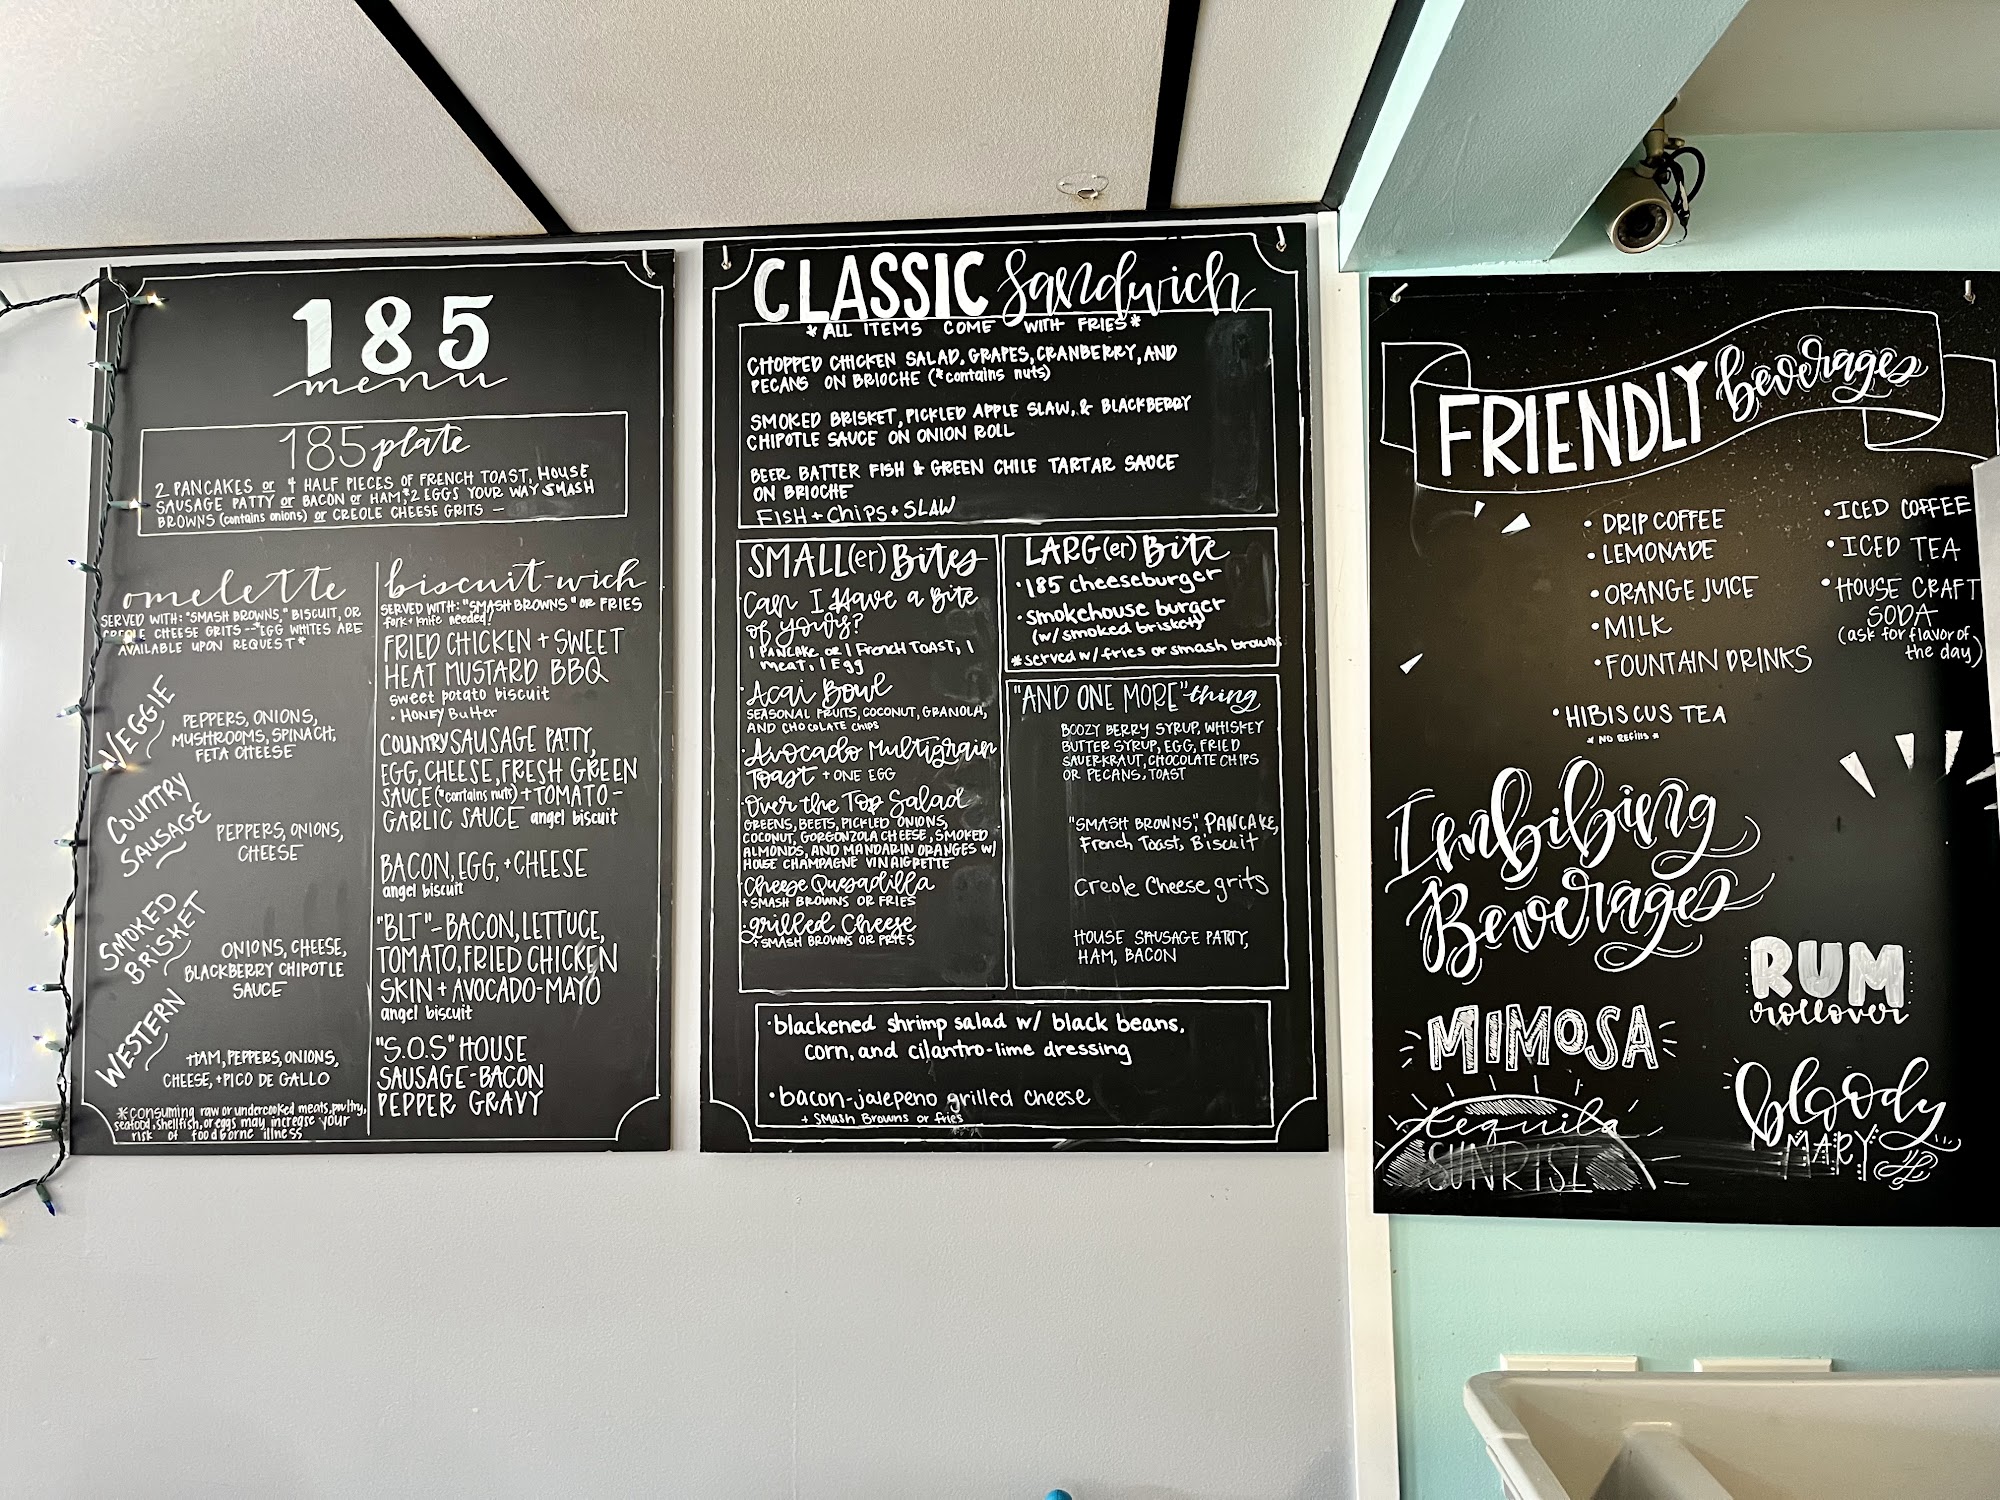 185
menu
185 plate
2 PANCAKES or 4 HALF PIECES OF FRENCH TOAST, HOUSE
SAUSAGE PATTY or BACON or HAM, *2 EGGS YOUR WAY SMASH
BROWNS (contains onions) or CREOLE CHEESE GRITS —
omelette
SERVED WITH: "SMASH BROWNS," BISCUIT, OR
CREOLE CHEESE GRITS -- *EGG WHITES ARE
AVAILABLE UPON REQUEST*
VEGGIE
PEPPERS, ONIONS,
MUSHROOMS, SPINACH,
FETA CHEESE
COUNTRY
SAUSAGE
PEPPERS, ONIONS,
CHEESE
SMOKED
BRISKET
ONIONS, CHEESE,
BLACKBERRY CHIPOTLE
SAUCE
WESTERN
HAM, PEPPERS, ONIONS,
CHEESE, + PICO DE GALLO
*consuming raw or undercooked meats, poultry,
seafood, shellfish, or eggs may increase your
risk of foodborne illness
biscuit-wich
SERVED WITH: "SMASH BROWNS" OR FRIES
fork + knife needed!
FRIED CHICKEN + SWEET
HEAT MUSTARD BBQ
sweet potato biscuit
• HONEY Butter
COUNTRY SAUSAGE PATTY,
EGG, CHEESE, FRESH GREEN
SAUCE (*contains nuts) + TOMATO-
GARLIC SAUCE angel biscuit
BACON, EGG, + CHEESE
angel biscuit
"BLT" - BACON, LETTUCE,
TOMATO, FRIED CHICKEN
SKIN + AVOCADO-MAYO
angel biscuit
"S.O.S" HOUSE
SAUSAGE-BACON
PEPPER GRAVY
CLASSIC sandwich
*ALL ITEMS COME WITH FRIES*
CHOPPED CHICKEN SALAD, GRAPES, CRANBERRY, AND
PECANS ON BRIOCHE (*contains nuts)
SMOKED BRISKET, PICKLED APPLE SLAW, & BLACKBERRY
CHIPOTLE SAUCE ON ONION ROLL
BEER BATTER FISH & GREEN CHILE TARTAR SAUCE
ON BRIOCHE
FISH + CHIPS + SLAW
SMALL(er) Bites
Can I Have a Bite
of yours?
1 PANCAKE or 1 FrencH TOAST, 1
meat, 1 Egg
• Acai Bowl
SEASONAL FRUITS, COCONUT, GRANOLA,
AND CHOCOLATE Chips
• Avocado Multigrain
Toast + ONE EGG
• Over the Top Salad
GREENS, BEETS, PICKLED ONIONS,
COCONUT, GORGONZOLA CHEESE, SMOKED
ALMONDS, AND MANDARIN ORANGES w/
HOUSE CHAMPAGNE VINAIGRETTE
• Cheese Quesadilla
+ SMASH BROWNS OR FRIES
• grilled Cheese
+ SMASH BROWNS OR FRIES
LARG(er) Bite
• 185 cheeseburger
• smokehouse burger
(w/ smoked brisket)
*served w/ fries or smash browns
"AND ONE MORE" thing
BOOZY BERRY SYRUP, WHISKEY
BUTTER SYRUP, EGG, FRIED
SAUERKRAUT, CHOCOLATE CHIPS
OR PECANS, TOAST
"SMASH BROWNS", PANCAKE,
French Toast, Biscuit
Creole Cheese grits
HOUSE SAUSAGE PATTY,
HAM, BACON
• blackened shrimp salad w/ black beans,
corn, and cilantro-lime dressing
• bacon-jalepeno grilled cheese
+ Smash Browns or fries
FRIENDLY beverages
• DRIP COFFEE
• LEMONADE
• ORANGE JUICE
• MILK
• FOUNTAIN DRINKS
• HIBISCUS TEA
* NO Refills *
• ICED COFFEE
• ICED TEA
• HOUSE CRAFT
SODA
(ask for flavor of
the day)
Imbibing
Beverages
RUM
rollover
MIMOSA
bloody
MARY
tequila
SUNRISE